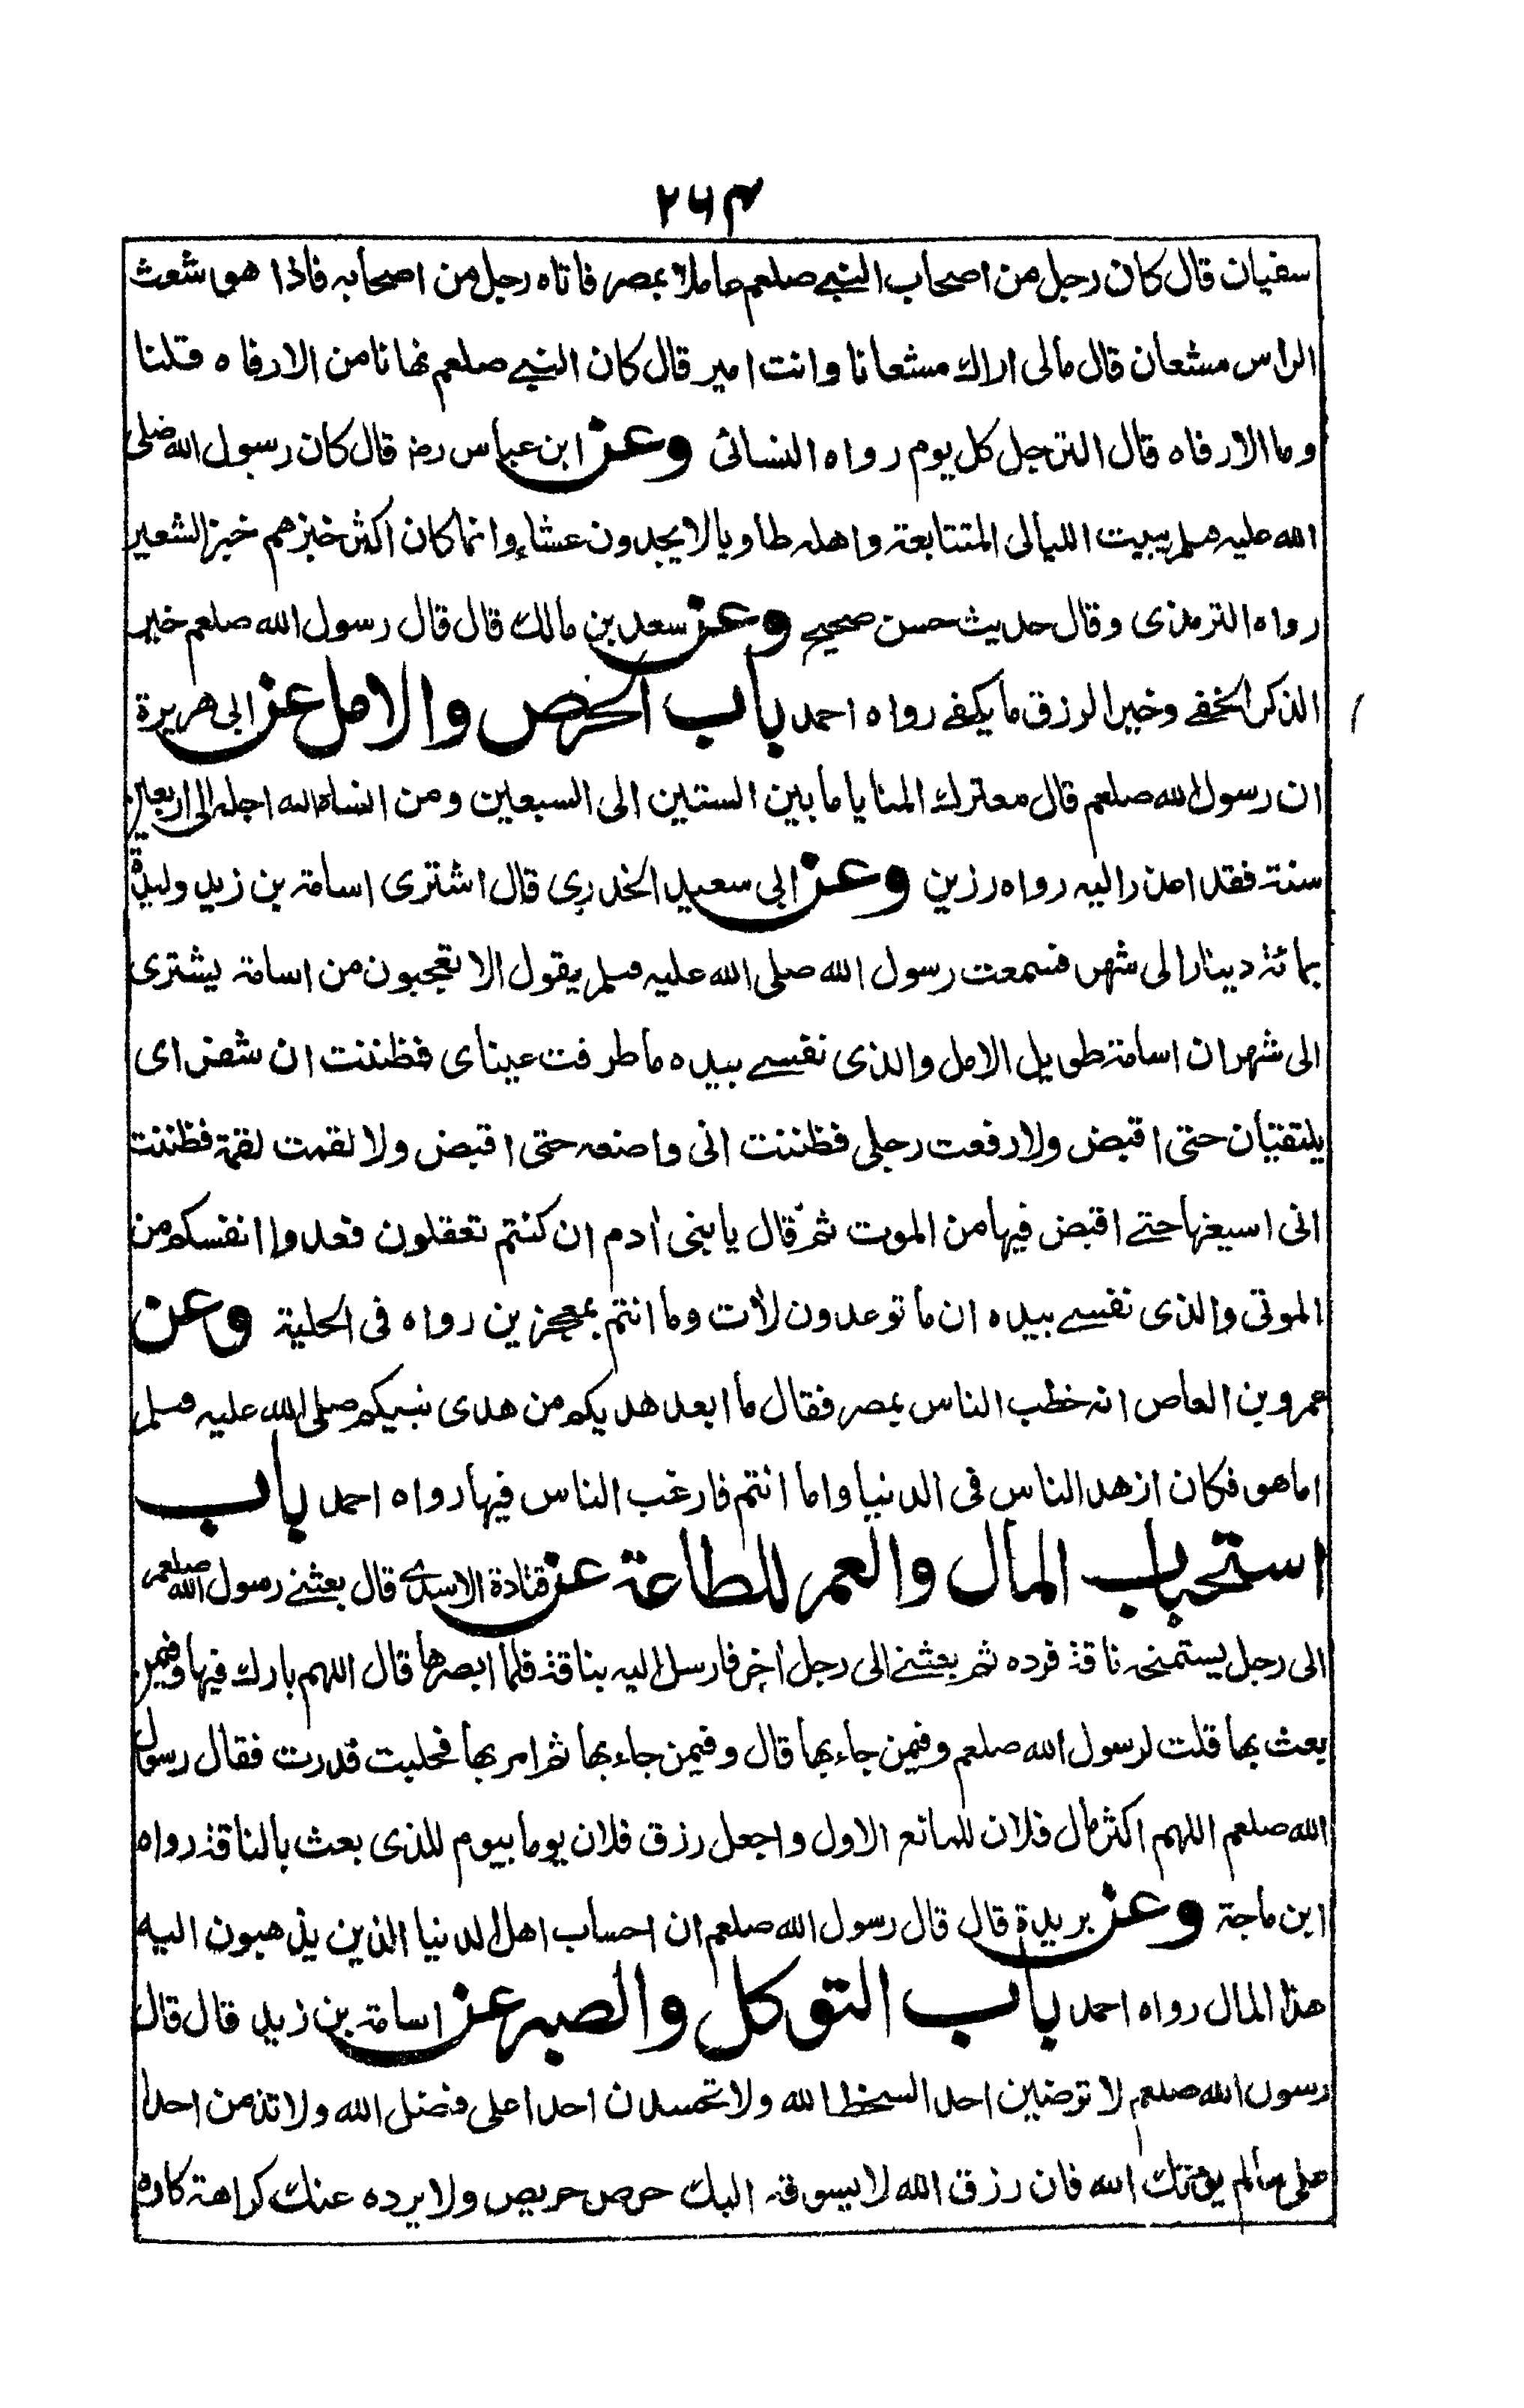 ۲۶۴
سفيان قال كان رجل من اصحاب النبي صلعم عاملا بمصر فاتاه رجل من اصحابه فاذا هو شعث
الراس مشعان قال مالى اراك مشعانا وانت امير قال كان النبي صلعم نهانا من الارفاه قلنا
وما الارفاه قال الترجل كل يوم رواه النسائى وعن ابن عباس رضه قال كان رسول الله صلى
الله عليه وسلم يبيت الليالى المتتابعة واهله طاويا لا يجدون عشاء وانما كان اكثر خبزهم خبز الشعير
رواه الترمذى وقال حديث حسن صحيح وعن سعد بن مالك قال قال رسول الله صلعم خير
الذكر الخفے وخير الرزق ما يكفے رواه احمد باب الحرص والامل عن ابى هريرة
ان رسول الله صلعم قال معترك المنايا ما بين الستين الى السبعين ومن انساه الله اجله الى اربعين
سنة فقد اعذر اليه رواه رزين وعن ابى سعيد الخدرى قال اشترى اسامة بن زيد وليدة
بمائة دينار الى شهر فسمعت رسول الله صلى الله عليه وسلم يقول الا تعجبون من اسامة يشترى
الى شهر ان اسامة طويل الامل والذى نفسے بيده ما طرفت عيناى فظننت ان شفراى
يلتقيان حتى اقبض ولا رفعت رجلى فظننت انى واضعه حتى اقبض ولا لقمت لقمة فظننت
انى اسيغها حتے اقبض فيها من الموت ثم قال يا بنى اٰدم ان كنتم تعقلون فعدوا انفسكم من
الموتى والذى نفسے بيده ان ما توعدون لاٰت وما انتم بمعجزين رواه فى الحلية وعن
عمرو بن العاص انه خطب الناس بمصر فقال ما ابعد هديكم من هدى نبيكم صلى الله عليه وسلم
اما هو فكان ازهد الناس فى الدنيا واما انتم فارغب الناس فيها رواه احمد باب
استحباب المال والعمر للطاعة عن قتادة الاسدے قال بعثنے رسول الله صلعم
الى رجل يستمنحه ناقة فرده ثم بعثنے الى رجل اٰخر فارسل اليه بناقة فلما ابصرها قال اللهم بارك فيها وفيمن
بعث بها قلت لرسول الله صلعم وفيمن جاء بها قال وفيمن جاء بها ثم امر بها فحلبت فدرت فقال رسول
الله صلعم اللهم اكثر مال فلان للمانع الاول واجعل رزق فلان يوما بيوم للذى بعث بالناقة رواه
ابن ماجة وعن بريدة قال قال رسول الله صلعم ان احساب اهل الدنيا الذين يذهبون اليه
هذا المال رواه احمد باب التوكل والصبر عن اسامة بن زيد قال قال
رسول الله صلعم لا ترضين احدا لسخط الله ولا تحسدن احدا على فضل الله ولا تذمن احدا
على ما لم يؤتك الله فان رزق الله لا يسوقه اليك حرص حريص ولا يرده عنك كراهة كاره